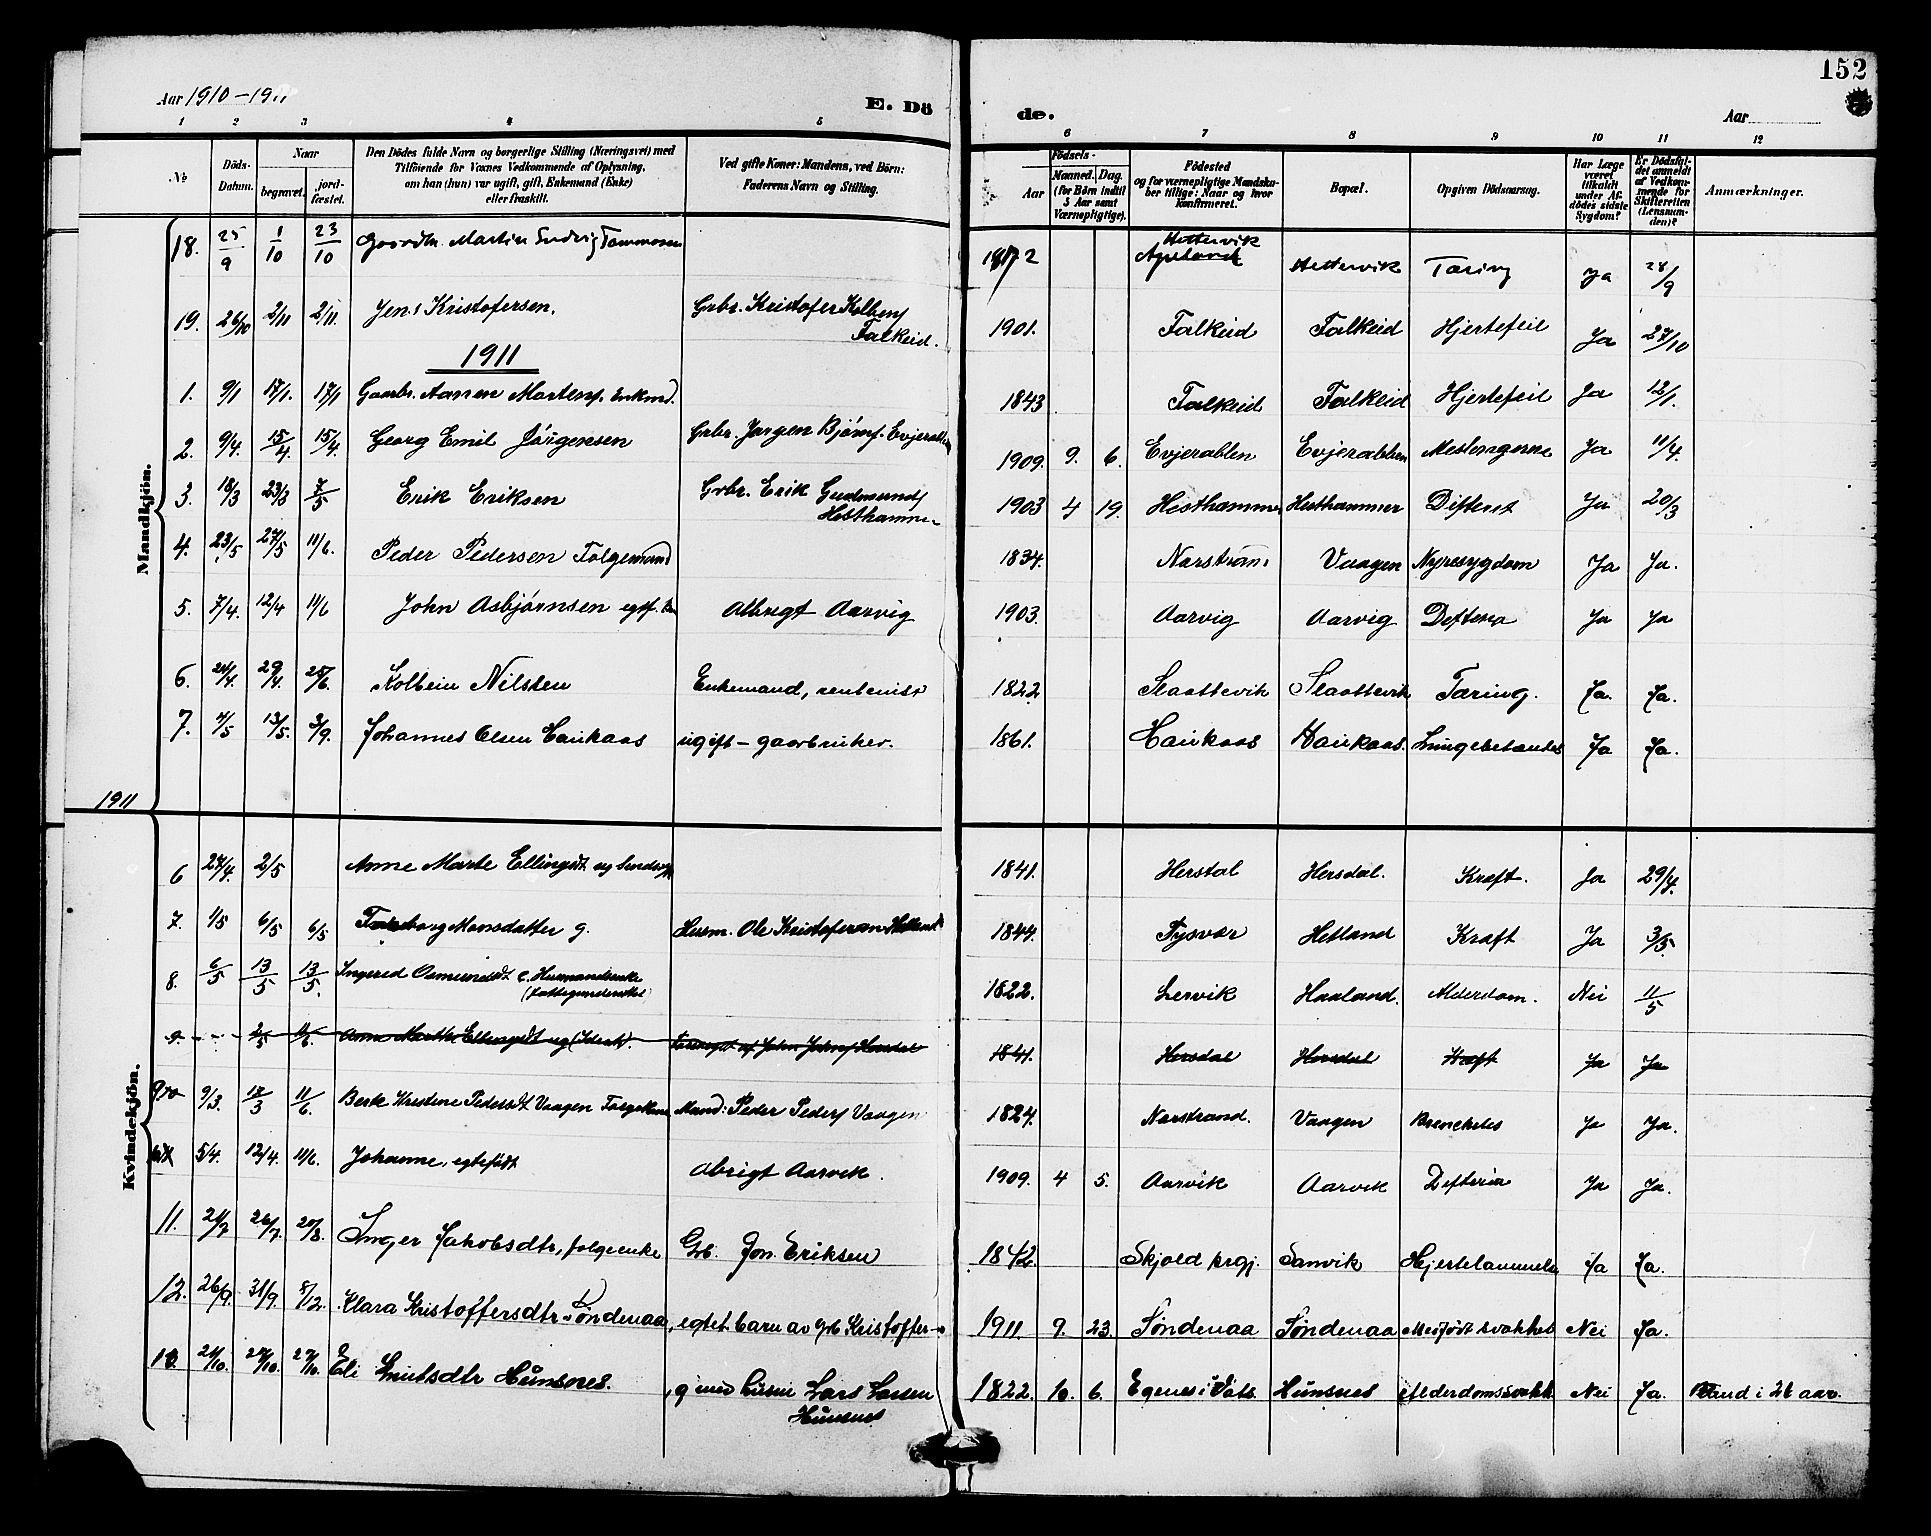 152
Aar 1910-1911
E. Döde.
Aar
1 2 3 4 5 6 7 8 9 10 11 12
No
Döds-Datum.
Naar
begravet.
jordfæstet.
Den Dödes fulde Navn og borgerlige Stilling (Næringsvei) med
Tilföiende for Voxnes Vedkommende af Oplysning,
om han (hun) var ugift, gift, Enkemand (Enke)
eller fraskilt.
Ved gifte Koner: Mandens, ved Börn:
Faderens Navn og Stilling.
Födsels-
Aar
Maaned. Dag.
(for Börn indtil 5 Aar samt Værnepligtige).
Födested
og for værnepligtige Mandskaber tillige: Naar og hvor konfirmeret.
Bopæl.
Opgiven Dödsaarsag.
Har Læge været tilkaldt under Afdödes sidste Sygdom?
Er Dödsfaldet anmeldt af Vedkommende for Skifteretten (Lensmanden)?
Anmærkninger.
Mandkjön.
18. 25/9 1/10 23/10 Martin Ludvig Tommosen 1872 Hettervik Hettervik Tæring Ja 28/9
19. 26/10 2/11 2/11. Jens Kristofersen. Grbr. Kristofer Kolbens Falkeid. 1901. Falkeid Falkeid Hjertefeil Ja 27/10
1911
1. 9/1 17/1. 17/1 Gaarbr. Martens. Enkmd. 1843 Falkeid Falkeid Hjertefeil Ja 12/1.
2. 9/4. 15/4. 15/4. Georg Emil Jörgensen Grbr. Jørgen Bjørns. Evjerabben 1909. 9. 6. Evjerabben Evjerabben Ja 11/4.
3. 18/3 23/3 7/5 Erik Eriksen Grbr. Erik Gudmunds Hesthammer 1903 4 19. Hesthammer Hesthammer Ja 20/3
4. 23/5 27/5 11/6. Peder Pedersen Folgemand 1834. Narstran. Vaagen Nyresygdom Ja Ja.
5. 7/4. 12/4 11/6 John Asbjörnsen Albrigt Aarvig 1903. Aarvig Aarvig Ja Ja
6. 24/4. 29/4. 25/6. Kolbein Nilsten Enkemand, rentenist 1822 Slaattevik Slaattevik Tæring. Ja. Ja.
7. 4/5 13/5. 3/9. Johannes Olsen Haukaas ugift – gaarbruker. 1861. Haukaas Haukaas. Ja Ja.
1911
Kvindekjön.
6 27/4. 2/5 Anne Marte Ellingsdt 1841. Herstal Hersdal. Kræft. Ja 29/4.
7. 1/5 6/5 6/5 Monsdatter g. Husm. Ole Kristofersen Hetland 1844. Tysvær Hetland Kræft Ja 3/5.
8. 6/5 13/5 13/5. Ingered Osmundsdt e. Husmandsenke 1822. Lervik Haaland. Alderdom. Nei 11/5
2/5 11/6. Anne Marthe Ellingsdt ug John Johns Hersdal 1841. Hersdal Hersdal Kræft Ja Ja
9 9/3. 17/3 11/6. Berte Kristene Pedersdt Vaagen Folgekone Mand: Peder Peders Vaagen 1824. Narstrand. Vaagen Ja Ja.
5/4. 12/4. 11/6. Johanne, egtefödt Abrigt Aarvik. 1909. 4 5. Aarvik Aarvik Defteria Ja Ja.
11. 21/7 26/7. 20/8. Inger Jakobsdtr, folgeenke Gb. Jon Eriksen 1842. Skjold prgj. Sanvik Hjertelammelse Ja Ja.
12. 26/9. 31/9. 8/12. Klara Kristoffersdtr Söndenaa, egtef. barn av Gb Kristoffer 1911 9. 23. Söndenaa Söndenaa Medfödt svakhet Nei Ja.
13 21/10. 27/10. 27/10. Eli Knutsdtr Hunsnes. , g med husm Lars Larsen Hunsnes 1822. 10. 6. Egenes i Vats. Hunsnes Alderdomssvakh Nei Ja. Blind i 26 aar.